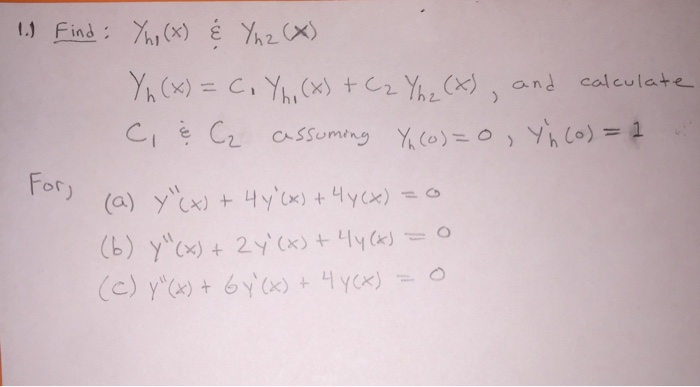 1.) Find: Yh1(x) & Yh2(x)
Yh(x) = C1 Yh1(x) + C2 Yh2(x), and calculate
C1 & C2 assuming Yh(0) = 0, Y'h(0) = 1
For;
(a) y''(x) + 4y'(x) + 4y(x) = 0
(b) y''(x) + 2y'(x) + 4y(x) = 0
(c) y''(x) + 6y'(x) + 4y(x) = 0